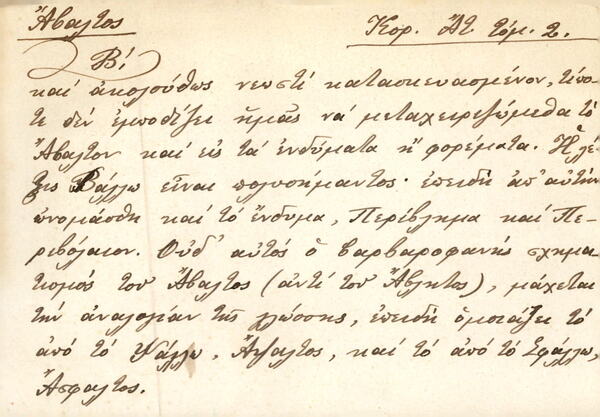 Ἄβαλτος Κορ. Ἄτ. τόμ. 2.
Β/
καὶ ἀκολούθως νεωστὶ κατασκευασμένον, τίπο-
τε δὲν ἐμποδίζει ἡμᾶς νὰ μεταχειριζώμεθα τὸ
Ἄβαλτον καὶ εἰς τὰ ἐνδύματα ἢ φορέματα. Ἡ λέ-
ξις Βάλλω εἶναι πολυσήμαντος· ἐπειδὴ ἀπ' αὐτὴν
ὠνομάσθη καὶ τὸ ἔνδυμα, Περίβλημα καὶ Πε-
ριβόλαιον. Οὐδ' αὐτὸς ὁ βαρβαροφανὴς σχημα-
τισμὸς τοῦ Ἄβαλτος (ἀντὶ τοῦ Ἄβλητος), μάχεται
τὴν ἀναλογίαν τῆς γλώσσης, ἐπειδὴ ὁμοιάζει τὸ
ἀπὸ τὸ Ψάλλω, Ἄψαλτος, καὶ τὸ ἀπὸ τὸ Σφάλλω,
Ἄσφαλτος.